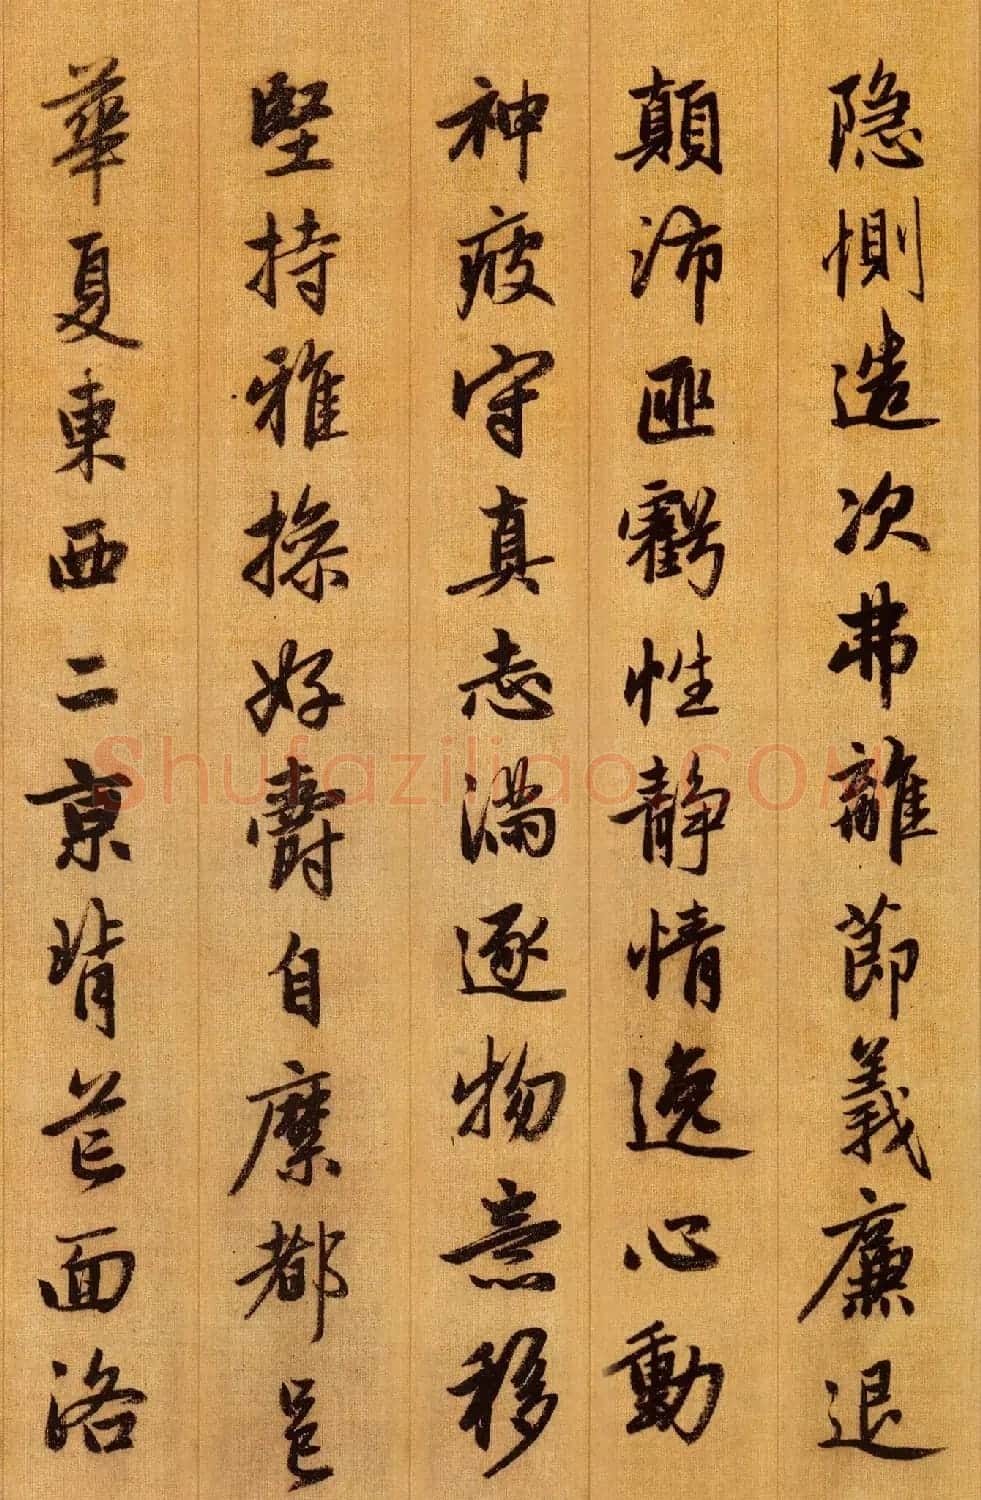 隐惻造次弗離節義廉退
顛沛匪虧性静情逸心動
神疲守真志滿逐物意移
堅持雅操好爵自縻都邑
華夏東西二京背芒面洛
Shufaziliao.COM